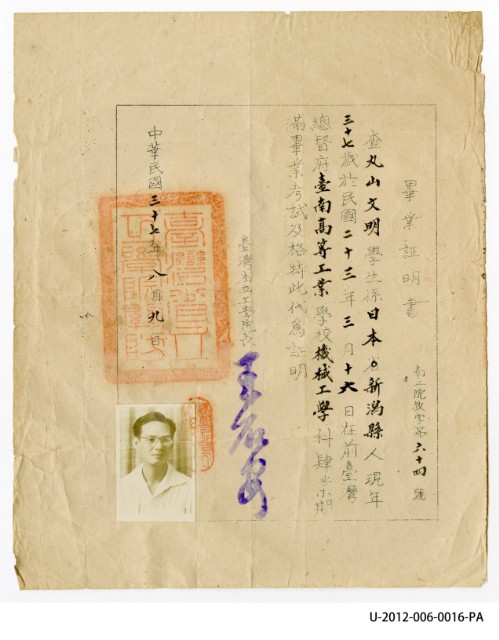 畢業証明書
南工院教字第六十四號
查丸山文明學生係日本省新潟縣人現年
三十七歲於民國二十三年三月十六日在前臺灣
總督府臺南高等工業學校機械工學科肄業期
滿畢業考試及格特此代為証明
臺灣省立工學院院長
王石安
中華民國三十七年八月九日
臺灣省立
工學院關防
U-2012-006-0016-PA